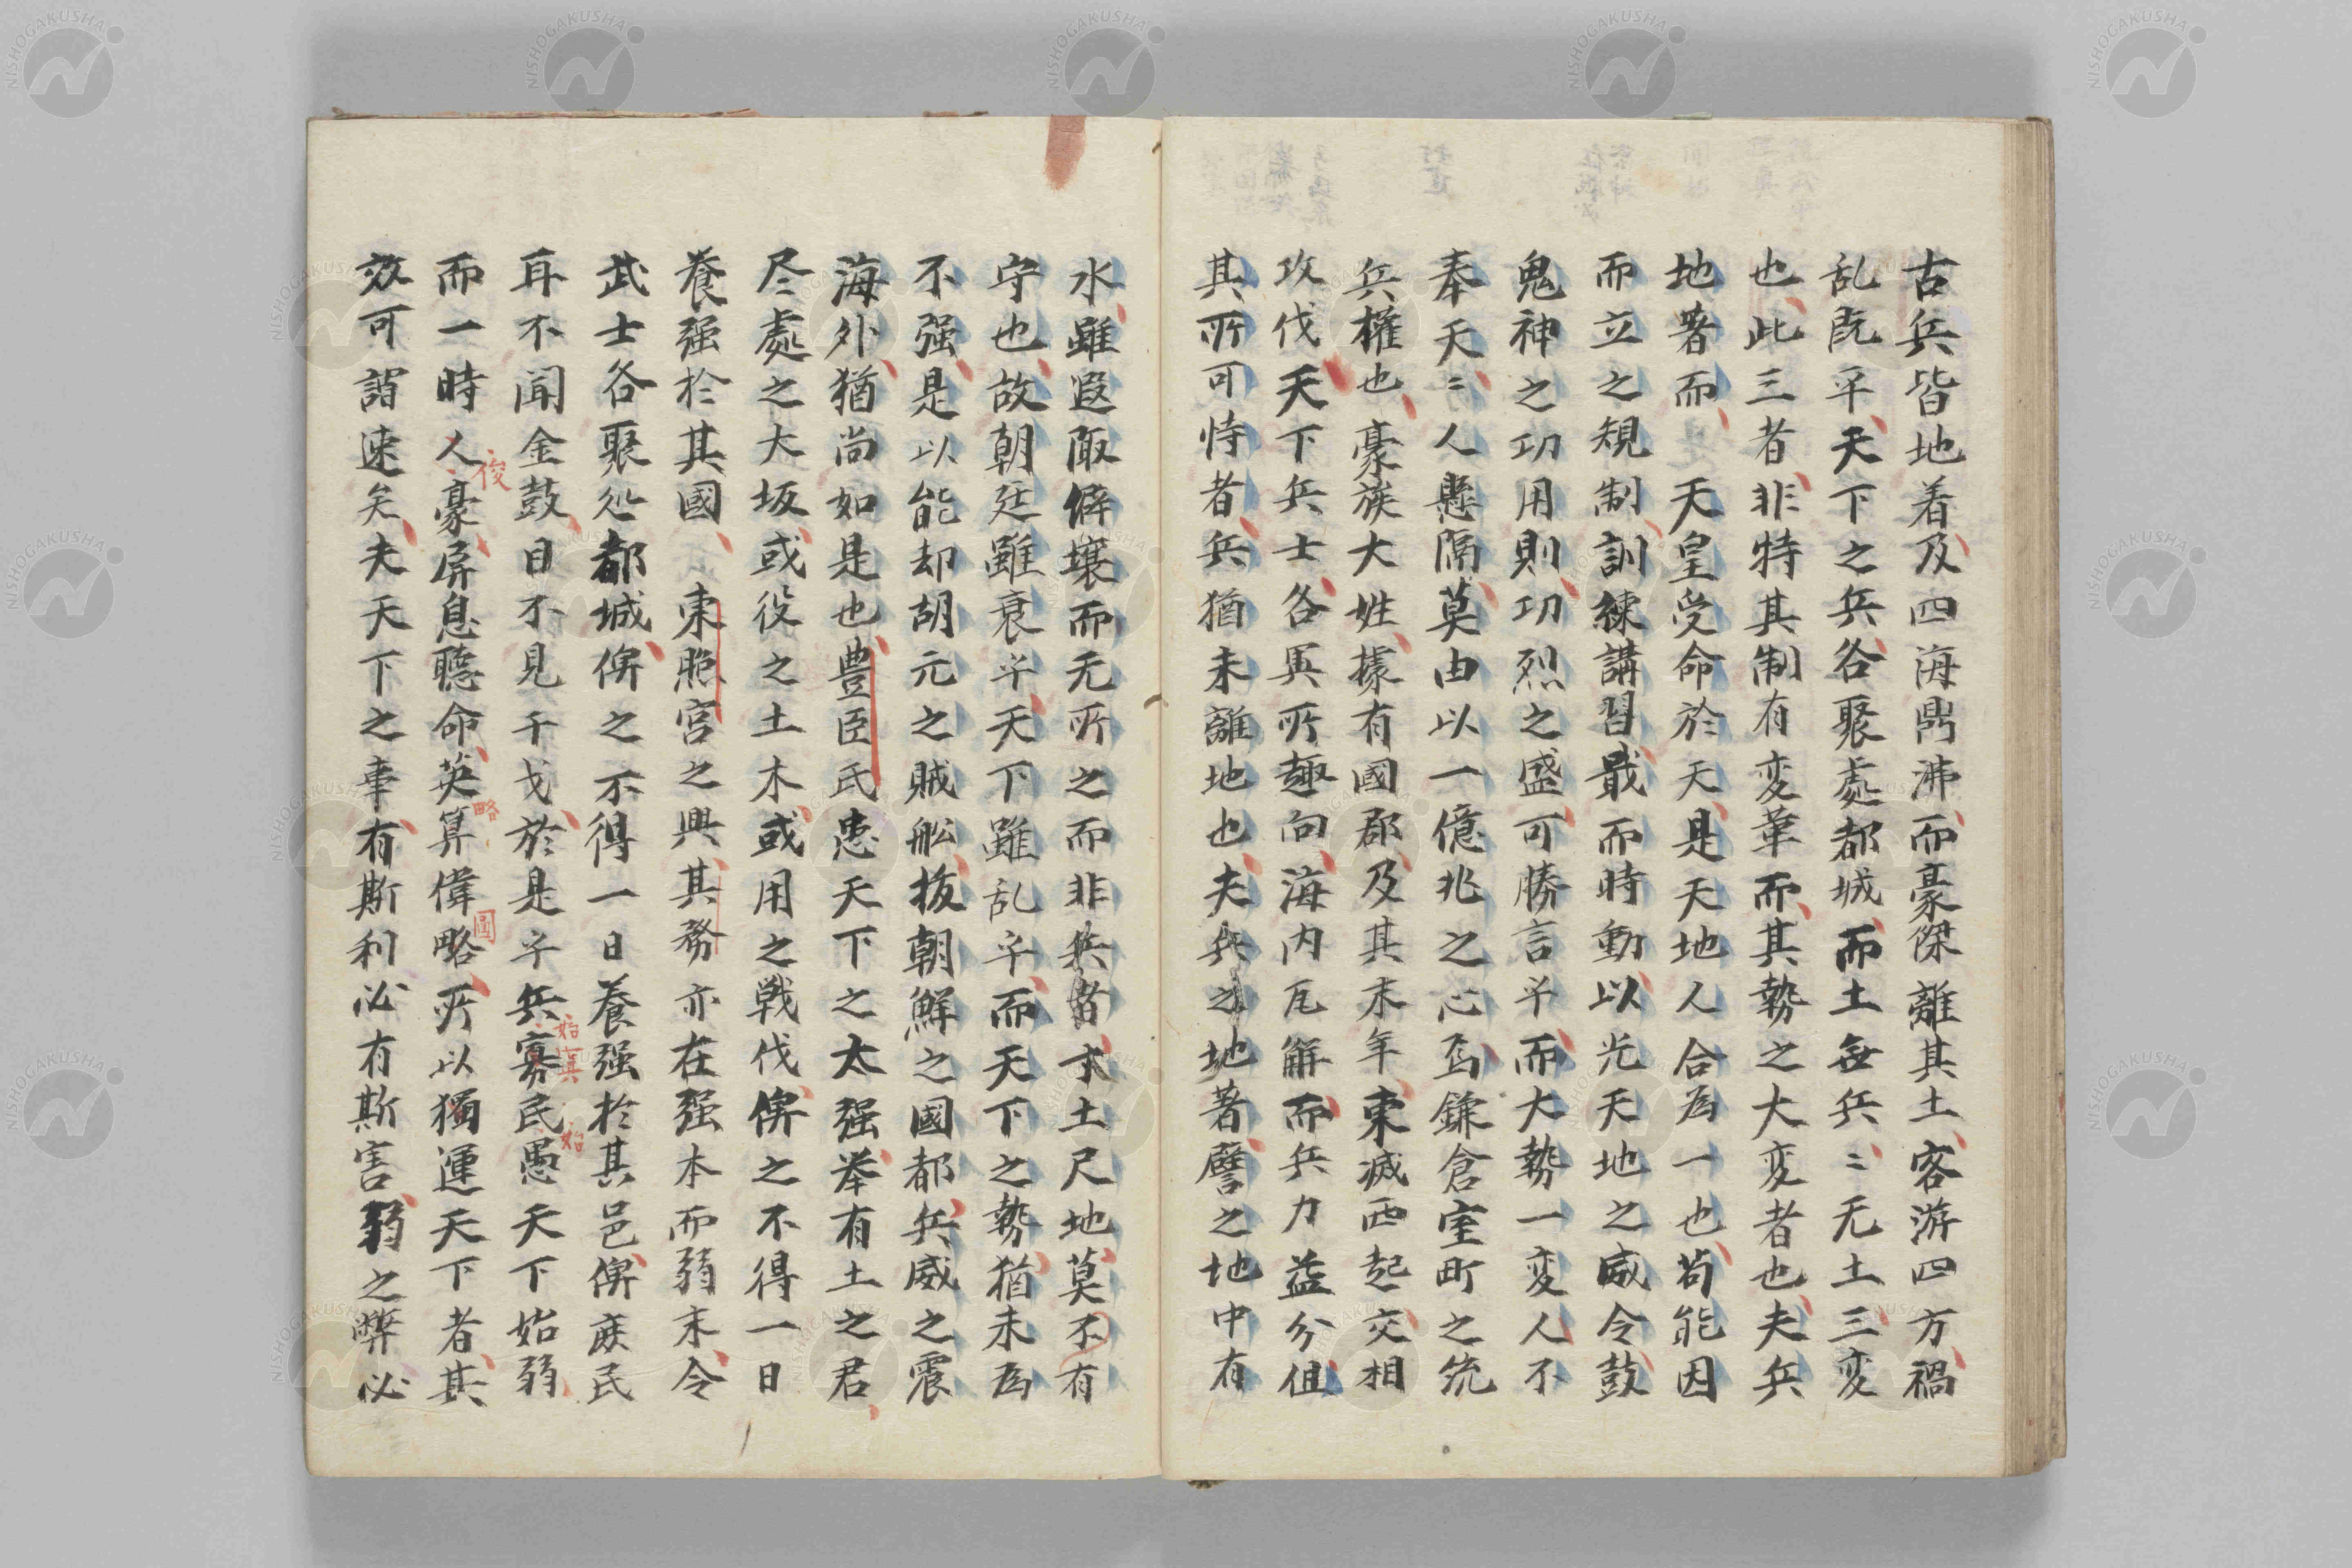 古兵皆地着及四海鼎沸而豪傑離其土客游四方禍
乱既平天下之兵各聚處都城而土無兵〻无土三変
也此三者非特其制有変革而其勢之大変者也夫兵
地著而 天皇受命於天是天地人合為一也苟能因
而立之規制訓練講習戢而時動以光天地之威令鼓
鬼神之功用則功烈之盛可勝言乎而大勢一変人不
奉天〻人懸隔莫由以一億兆之心焉鎌倉室町之統
兵權也豪族大姓據有國郡及其末年東滅西起交相
攻伐天下兵士各異所趣向海内瓦解而兵力益分但
其所可恃者兵猶未離地也夫兵之地著譬之地中有
水雖遐陬僻壤而无所之而非兵者寸土尺地莫不有
守也故朝廷雖衰乎天下雖乱乎而天下之勢猶未為
不强是以能却胡元之賊舩抜朝鮮之國都兵威之震
海外猶尚如是也豊臣氏患天下之太强挙有土之君
尽處之大坂或役之土木或用之戦伐俾之不得一日
養强於其國 東照宮之興其務亦在强本而弱末令
武士各聚処都城俾之不得一日養强於其邑俾庶民
耳不聞金鼓目不見干戈於是乎兵寡民愚天下始弱
始寡
始
而一時人豪屏息聽命英算偉略所以獨運天下者其
俊
略
圖
效可謂速矣夫天下之事有斯利必有斯害弱之弊必
NISHOGAKUSHA